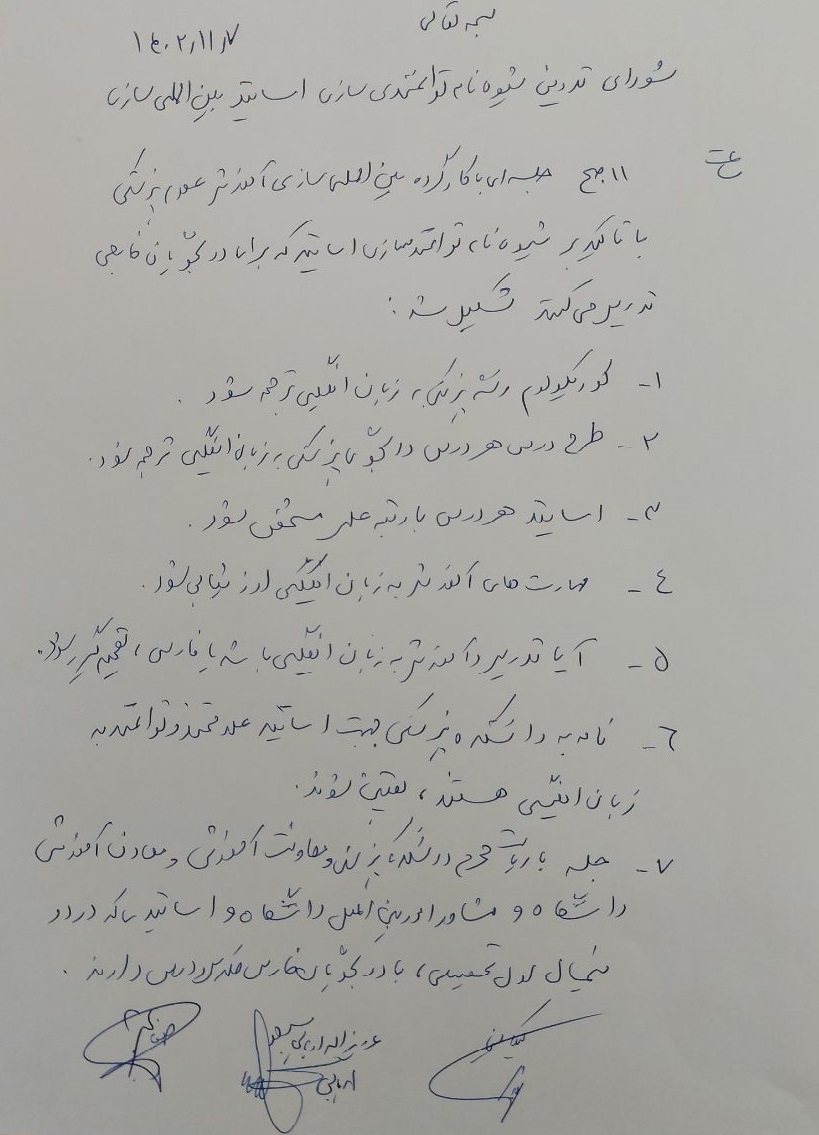 بسمه تعالی
۱۴۰۲/۱۱/
شورای تدوین شیوه نامه توانمندی سازی اساتید بین المللی سازی
ساعت ۱۱ صبح جلسه ای با کارگروه بین المللی سازی آموزش علوم پزشکی
با تاکید بر شیوه نامه توانمندسازی اساتید که برای دانشجویان خارجی
تدریس می کنند تشکیل شد :
۱- کوریکولوم رشته پزشکی به زبان انگلیسی ترجمه شود .
۲- طرح درس هر درس دانشجوی پزشکی به زبان انگلیسی ترجمه شود.
۳- اساتید هر درس با رتبه علمی مشخص شود .
۴- مهارت های آموزش به زبان انگلیسی ارزشیابی شود .
۵- آیا تدریس و آموزش به زبان انگلیسی باشد یا فارسی ، تصمیم گیری شود.
۶- نامه به دانشکده پزشکی جهت اساتید علاقمند و توانمند به
زبان انگلیسی هستند ، تعیین شوند.
۷- جلسه با ریاست محترم دانشکده پزشکی و معاونت آموزشی و معاون آموزشی
دانشگاه و مشاور امور بین الملل دانشگاه و اساتیدی که در دو
نیمسال اول تحصیلی ، با دانشجویان خارجی کلاس درس دارند .